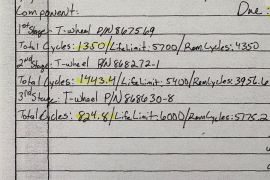 Component: Due:
1st Stage: T-wheel P/N 867569
Total Cycles: 1350/Life Limit: 5700/Rem Cycles: 4350
2nd Stage: T-wheel P/N 868272-1
Total Cycles: 1443.4/Life Limit: 5400/Rem Cycles: 3956.6
3rd Stage: T-wheel P/N 868630-8
Total Cycles: 824.8/Life Limit: 6000/Rem Cycles: 5175.2